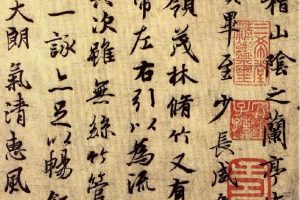 稽山陰之蘭亭
畢至少長咸
嶺茂林脩竹又有
帶左右引以為流
其次雖無絲竹管
一詠亦足以暢
天朗氣清惠風